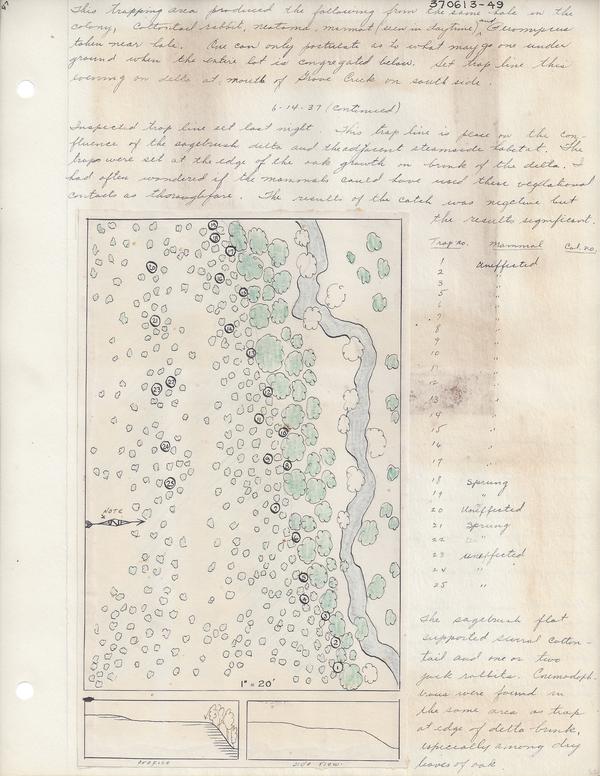 370613-49
This trapping area produced the following from the same hole in the
colony, Cottontail rabbit, neotoma, marmot (seen in daytime), Peromyscus
taken near hole. One can only postulate as to what may go one under
ground when the entire lot is congregated below. Set trap line this
evening on delta at mouth of Grove Creek on south side.
6-14-37 (continued)
Inspected trap line set last night. This trap line is place on the con-
fluence of the sagebrush delta and the adjacent streamside habitat. The
traps were set at the edge of the oak growth on brink of the delta. I
had often wondered if the mammals could have used these vegetational
contacts as thoroughfare. The results of the catch was negative but
the results significant.
Trap no. Mammal Cat. no.
1 Uneffected
2 "
3 "
5 "
6 "
7 "
8 "
9 "
10 "
11 "
12 "
13 "
14 "
15 "
16 "
17 "
18 Sprung
19 "
20 Uneffected
21 Sprung
22 "
23 uneffected
24 "
25 "
The sagebrush flat
supported several cotton-
tail and one or two
jack rabbits.
were found in
the same area as trap
at edge of delta-brink,
especially among dry
leaves of oak
NOTE
N
1" = 20'
PROFILE
SIDE VIEW